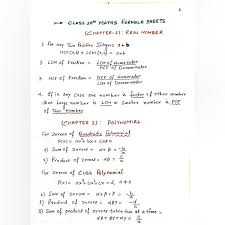 CLASS 10th MATHS FORMULA SHEETS
(CHAPTER-1): REAL NUMBER
1. For any Two Positive Integers a & b
HCF(a,b) × LCM(a,b) = a×b
2. LCM of Fraction = LCM of Numerator / HCF of Denominator
3. HCF of Fraction = HCF of Numerator / LCM of Denominator
4. If in any case one number is factor of other number
then large number is LCM & smaller is HCF
of Two number.
(CHAPTER 2): POLYNOMIAL
For zeroes of Quadratic Polynomial
P(x) = ax²+bx+c
1) Sum of zeroes = α+β = -b/a
2) Product of zeroes = αβ = c/a
For zeroes of Cubic Polynomial
P(x) = ax³+bx²+cx+d, a≠0
1) Sum of zeroes = α+β+γ = -b/a
2) Product of zeroes = αβγ = -d/a
3) Sum of product of zeroes taken two at a time =
αβ+βγ+γα = c/a